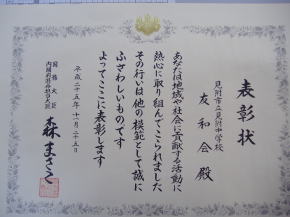 表彰状
見附市立見附中学校
友和会殿
あなたは地域や社会に貢献する活動に
熱心に取り組んでこられました
その行いは他の模範として誠に
ふさわしいものです
よってここに表彰します
平成二十五年十一月二十五日
国務大臣
内閣府特命担当大臣
森まさこ